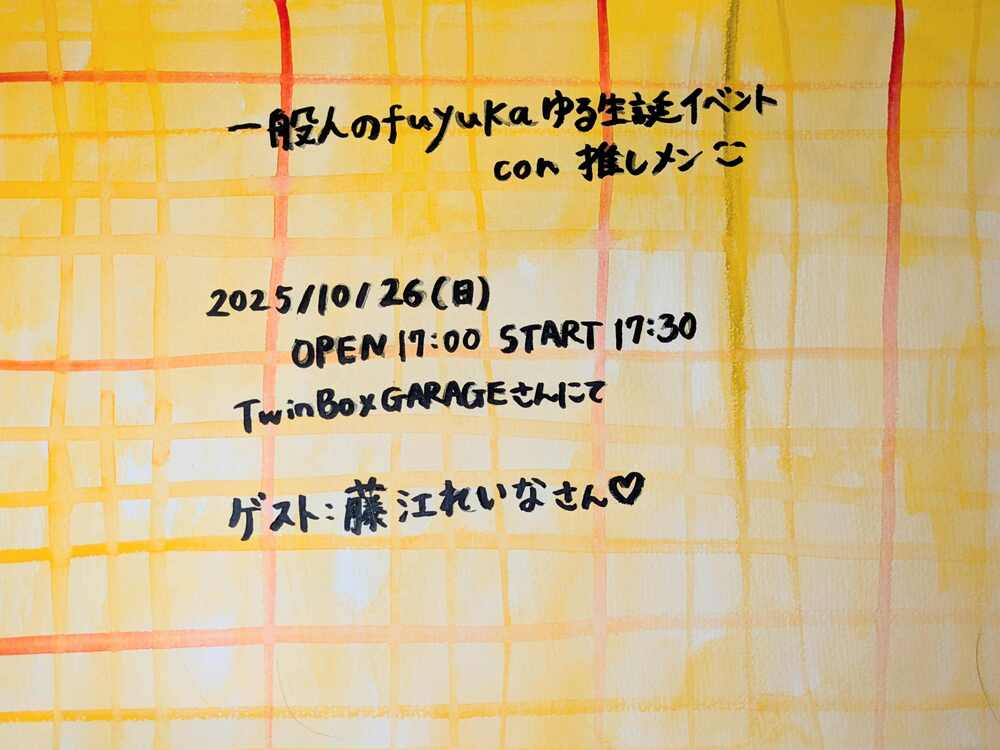 一般人のfuyukaゆる生誕イベント
con 推しメン
2025/10/26(日)
OPEN 17:00 START 17:30
TwinBox GARAGEさんにて
ゲスト:藤江れいなさん♡